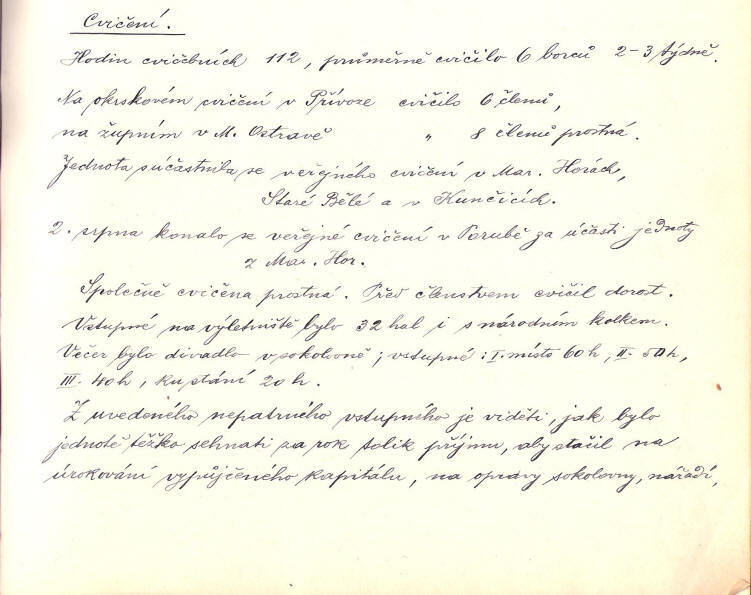 Cvičení.
Hodin cvičebních 112, průměrně cvičilo 6 borců 2-3 týdně.
Na okrskovém cvičení v Přívoze cvičilo 6 členů,
na župním v M. Ostravě „ 8 členů prostná.
Jednota súčastnila se veřejného cvičení v Mar. Horách,
Staré Bělé a v Kunčicích.
2. srpna konalo se veřejné cvičení v Porubě za účasti jednoty
z Mar. Hor.
Společně cvičena prostná. Před členstvem cvičil dorost.
Vstupné na výletniště bylo 32 hal i s národním kolkem.
Večer bylo divadlo v sokolovně; vstupné: I. místo 60 h, II. 50 h,
III. 40 h, ku stání 20 h.
Z uvedeného nepatrného vstupného je viděti, jak bylo
jednotě těžko sehnati za rok tolik příjmu, aby stačil na
úrokování vypůjčeného kapitálu, na opravy sokolovny, nářadí,